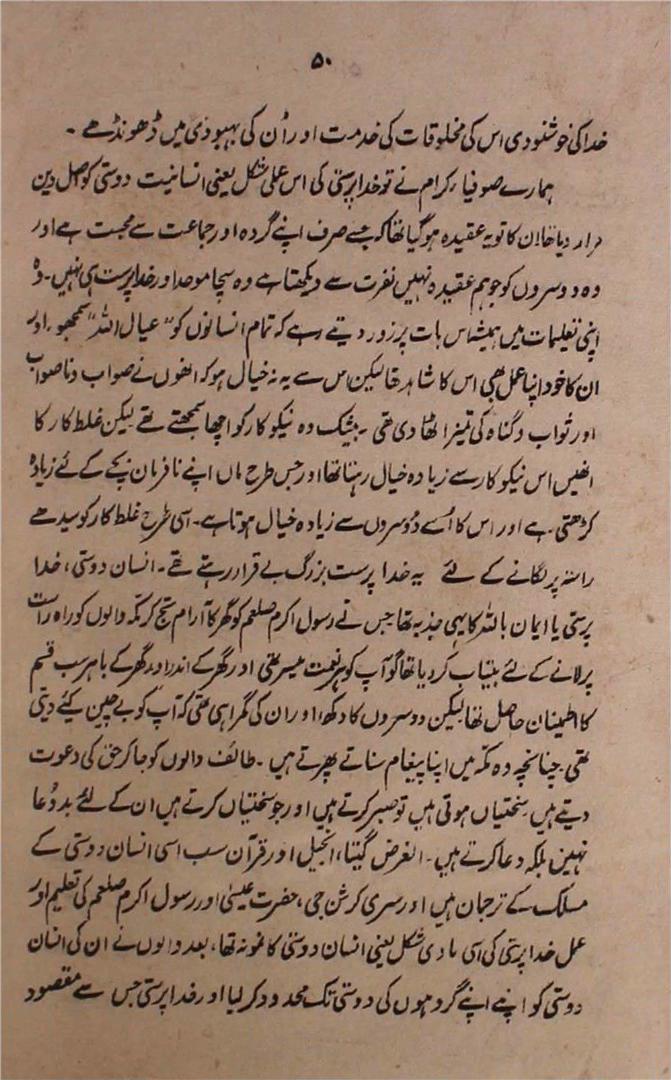 ۵۰
خدا کی خوشنودی اس کی مخلوقات کی خدمت اور اُن کی بہبودی میں ڈھونڈھے ۔
ہمارے صوفیاء کرام نے تو خدا پرستی کی اس عملی شکل یعنی انسانیت دوستی کو اصل دین
قرار دیا تھا ان کا تو یہ عقیدہ ہو گیا تھا کہ جسے صرف اپنے گروہ اور جماعت سے محبت ہے اور
وہ دوسروں کو جو ہم عقیدہ نہیں نفرت سے دیکھتا ہے وہ سچا موحد اور خدا پرست ہی نہیں ۔ وہ
اپنی تعلیمات میں ہمیشہ اس بات پر زور دیتے رہے کہ تمام انسانوں کو "عیال اللہ" سمجھو ۔ اور
ان کا خود اپنا عمل بھی اس کا شاہد تھا لیکن اس سے یہ نہ خیال ہو کہ انھوں نے صواب و ناصواب
اور ثواب و گناہ کی تمیز اٹھا دی تھی ۔ بیشک وہ نیکو کار کو اچھا سمجھتے تھے لیکن غلط کار کا
انھیں اس نیکو کار سے زیادہ خیال رہتا تھا اور جس طرح ماں اپنے نافرمان بچے کے لئے زیادہ
کڑھتی ہے اور اس کا اُسے دُوسروں سے زیادہ خیال ہوتا ہے ۔ اسی طرح غلط کار کو سیدھے
راستہ پر لگانے کے لئے یہ خدا پرست بزرگ بے قرار رہتے تھے ۔ انسان دوستی ، خدا
پرستی یا ایمان باللہ کا یہی جذبہ تھا جس نے رسول اکرم صلعم کو گھر کا آرام تج کر مکہ والوں کو راہ راست
پر لانے کے لئے بیتاب کر دیا تھا گو آپ کو ہر نعمت میسر تھی اور گھر کے اندر اور گھر کے باہر سب قسم
کا اطمینان حاصل تھا لیکن دوسروں کا دکھ اور ان کی گمراہی تھی کہ آپ کو بے چین کیئے دیتی
تھی چنانچہ وہ مکہ میں اپنا پیغام سناتے پھرتے ہیں ۔ طائف والوں کو جا کر حق کی دعوت
دیتے ہیں سختیاں ہوتی ہیں تو صبر کرتے ہیں اور جو سختیاں کرتے ہیں ان کے لئے بد دُعا
نہیں بلکہ دعا کرتے ہیں ۔ الغرض گیتا ، انجیل اور قرآن سب اسی انسان دوستی کے
مسلک کے ترجمان ہیں اور سری کرشن جی ، حضرت عیسیٰ اور رسول اکرم صلعم کی تعلیم اور
عمل خدا پرستی کی اسی مادی شکل یعنی انسان دوستی کا نمونہ تھا ، بعد والوں نے ان کی انسان
دوستی کو اپنے اپنے گروہوں کی دوستی تک محدود کر لیا اور خدا پرستی جس سے مقصود